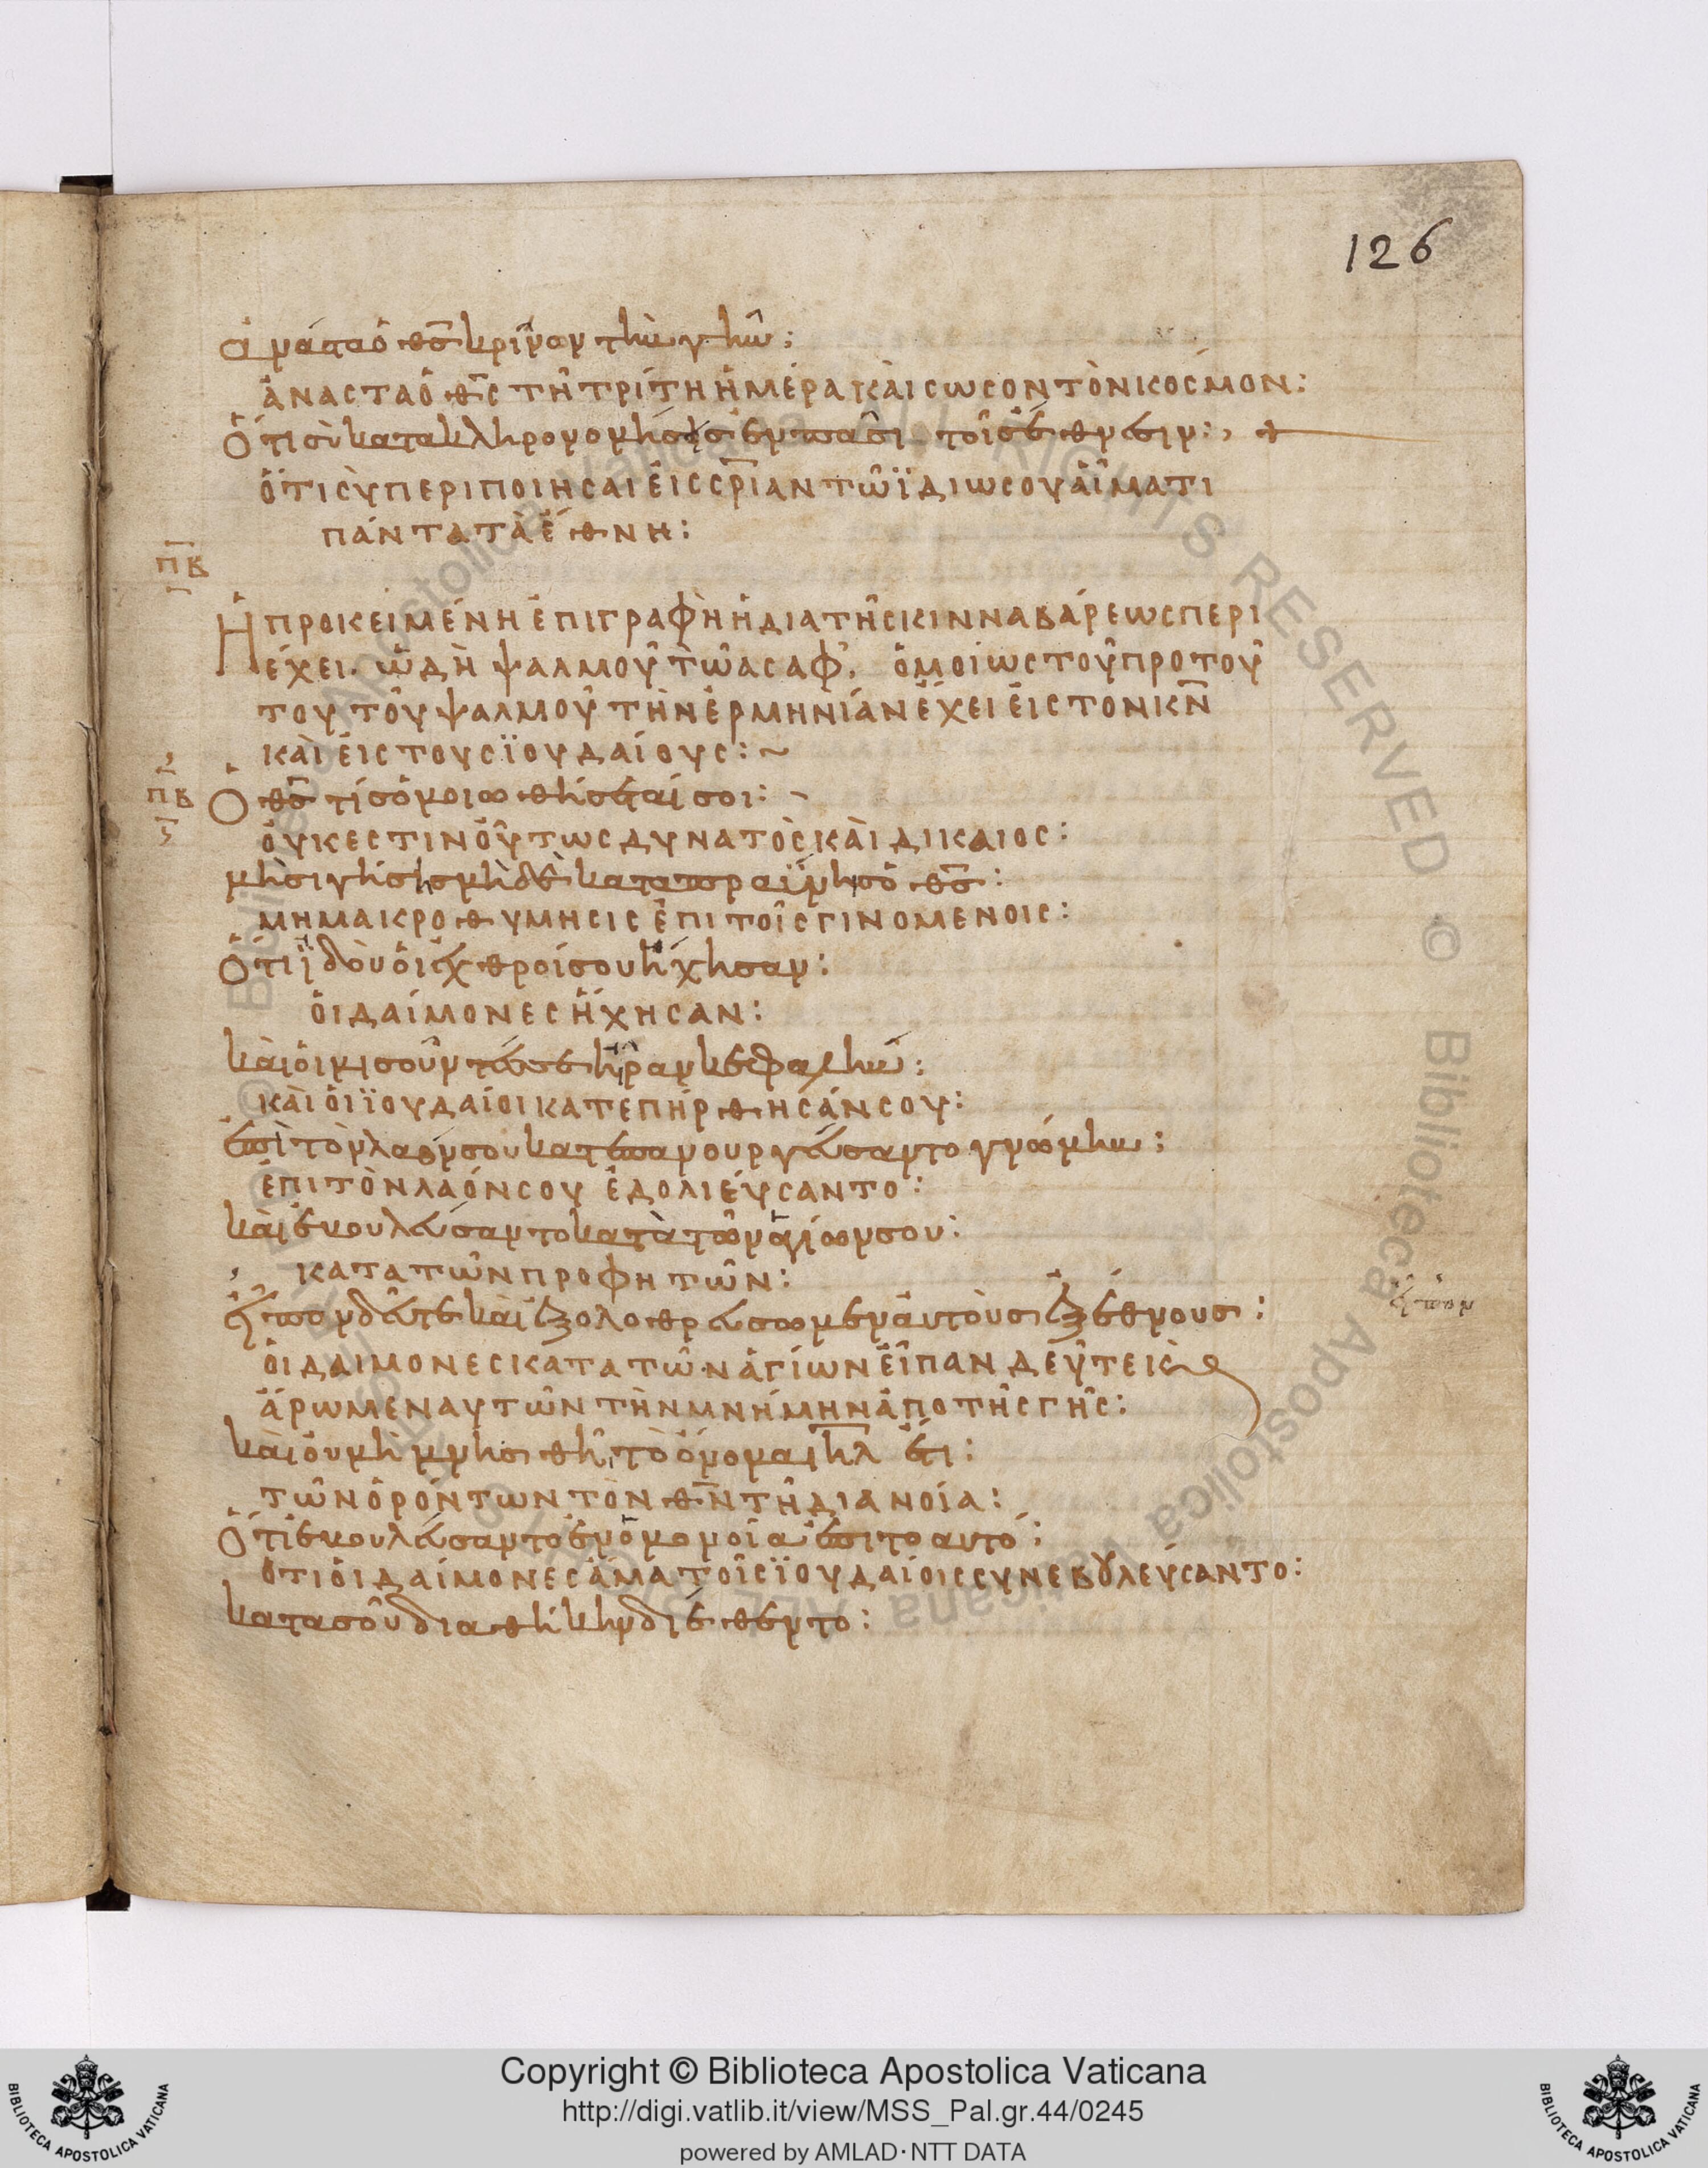 126
ἀνάστα ὁ θς κρίνον τὴν γῆν:
ἀνάστα ὁ θς τῆ τρίτη ἡμέρα καὶ σῶσον τὸν κόσμον:
Ὅτι σὺ κατακληρονομήσεις ἐν πᾶσι τοῖς ἔθνεσιν:
ὅτι σὺ περιποιῆσαι εἰς σρίαν τῶ ϊδίω σου αἵματι
πάντα τὰ ἔθνη:
πβ
Ἡ προκειμένη ἐπιγραφὴ ἡ διὰ τῆς κινναβάρεως περι
έχει. ὠδὴ ψαλμοῦ τῶ ασαφ, ὁμοίως τοῦ πρὸ τού
του τοῦ ψαλμοῦ τὴν ἑρμηνίαν ἔχει εἰς τὸν κν
καὶ εἰς τοὺς ϊουδαίους:~
πβ
Ὁ θς τίς ὁμοιωθήσεταί σοι:
οὐκ ἔστιν οὕτως δυνατὸς καὶ δίκαιος:
μὴ σιγήσης μηδὲ καταπραΰνης ὁ θς:
μὴ μακροθυμήσις ἐπὶ τοῖς γινομένοις:
Ὅτι ϊδοὺ οἱ ἐχθροί σου ἤχησαν:
οἱ δαίμονες ἤχησαν:
καὶ οἱ μισοῦντές σε ἦραν κεφαλήν:
καὶ οἱ ϊουδαίοι κατεπήρθησάν σου:
ἐπὶ τὸν λαόν σου κατεπανουργεύσαντο γνώμην:
ἐπὶ τὸν λαόν σου ἐδολιεύσαντο:
καὶ ἐβουλεύσαντο κατὰ τῶν ἁγίων σου:
κατὰ τῶν προφητῶν:
εἶπον δεῦτε καὶ ἐξολοθρεύσωμεν αὐτοὺς ἐξ ἔθνους:
εἶπον
οἱ δαίμονες κατὰ τῶν ἁγίων εἶπαν δεῦτε κ
ἄρωμεν αὐτῶν τὴν μνήμην ἀπὸ τῆς γῆς:
καὶ οὐ μὴ μνησθῆ τὸ ὄνομα ιηλ ἔτι:
τῶν ὁρόντων τὸν θν τῆ διανοία:
Ὅτι ἐβουλεύσαντο ἐν ὁμονοία ἐπὶ τὸ αυτό:
ὅτι οἱ δαίμονες ἅμα τοῖς ϊουδαίοις συνεβουλεύσαντο:
κατὰ σοῦ διαθήκην διέθεντο:
Copyright © Biblioteca Apostolica Vaticana
http://digi.vatlib.it/view/MSS_Pal.gr.44/0245
powered by AMLAD·NTT DATA